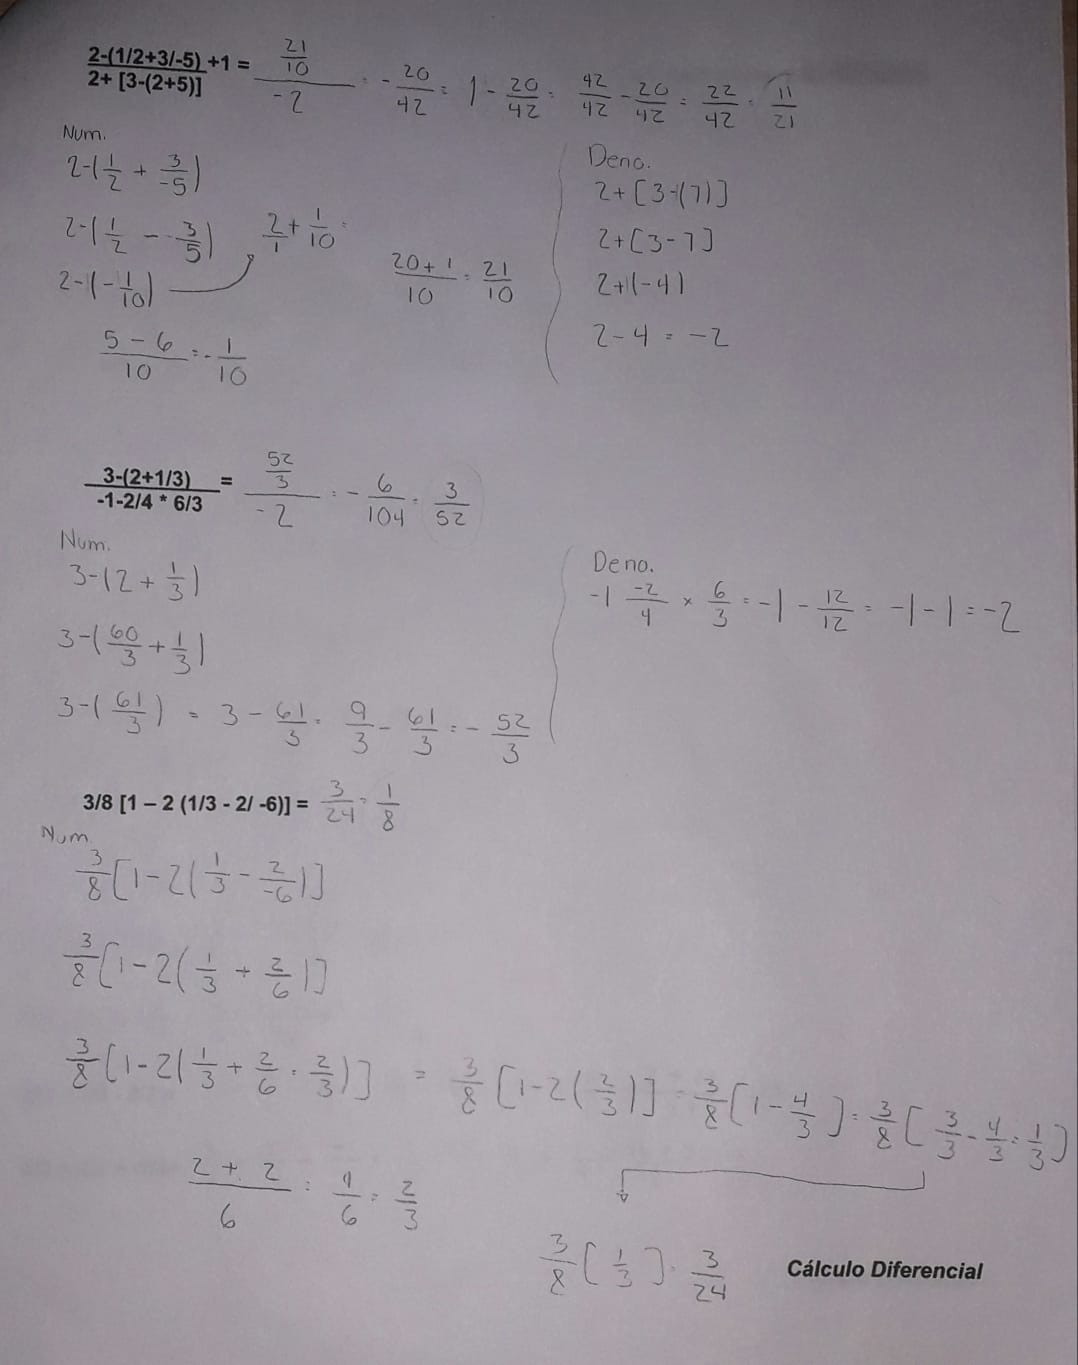 2-(1/2+3/-5) +1 = 21/10 / -2 = - 20/42 = 1 - 20/42 = 42/42 - 20/42 = 22/42 = 11/21
2+ [3-(2+5)]
Num.
2-(1/2 + 3/-5)
2-(1/2 - 3/5)
2-(-1/10)
2/1 + 1/10 =
20+1/10 = 21/10
5-6/10 = -1/10
Deno.
2+[3-(7)]
2+[3-7]
2+(-4)
2-4 = -2
3-(2+1/3) = 52/3 / -2 = - 6/104 = 3/52
-1-2/4 * 6/3
Num.
3-(2 + 1/3)
3-(60/3 + 1/3)
3-(61/3) = 3 - 61/3 = 9/3 - 61/3 = - 52/3
Deno.
-1 -2/4 x 6/3 = -1 - 12/12 = -1-1 = -2
3/8 [1 – 2 (1/3 - 2/ -6)] = 3/24 = 1/8
Num.
3/8 [1-2(1/3 - 2/-6)]
3/8 [1-2(1/3 + 2/6)]
3/8 [1-2(1/3 + 2/6 = 2/3)] = 3/8 [1-2(2/3)] = 3/8 [1 - 4/3] = 3/8 [3/3 - 4/3 = 1/3]
2+2/6 = 4/6 = 2/3
3/8 [1/3] = 3/24
Cálculo Diferencial